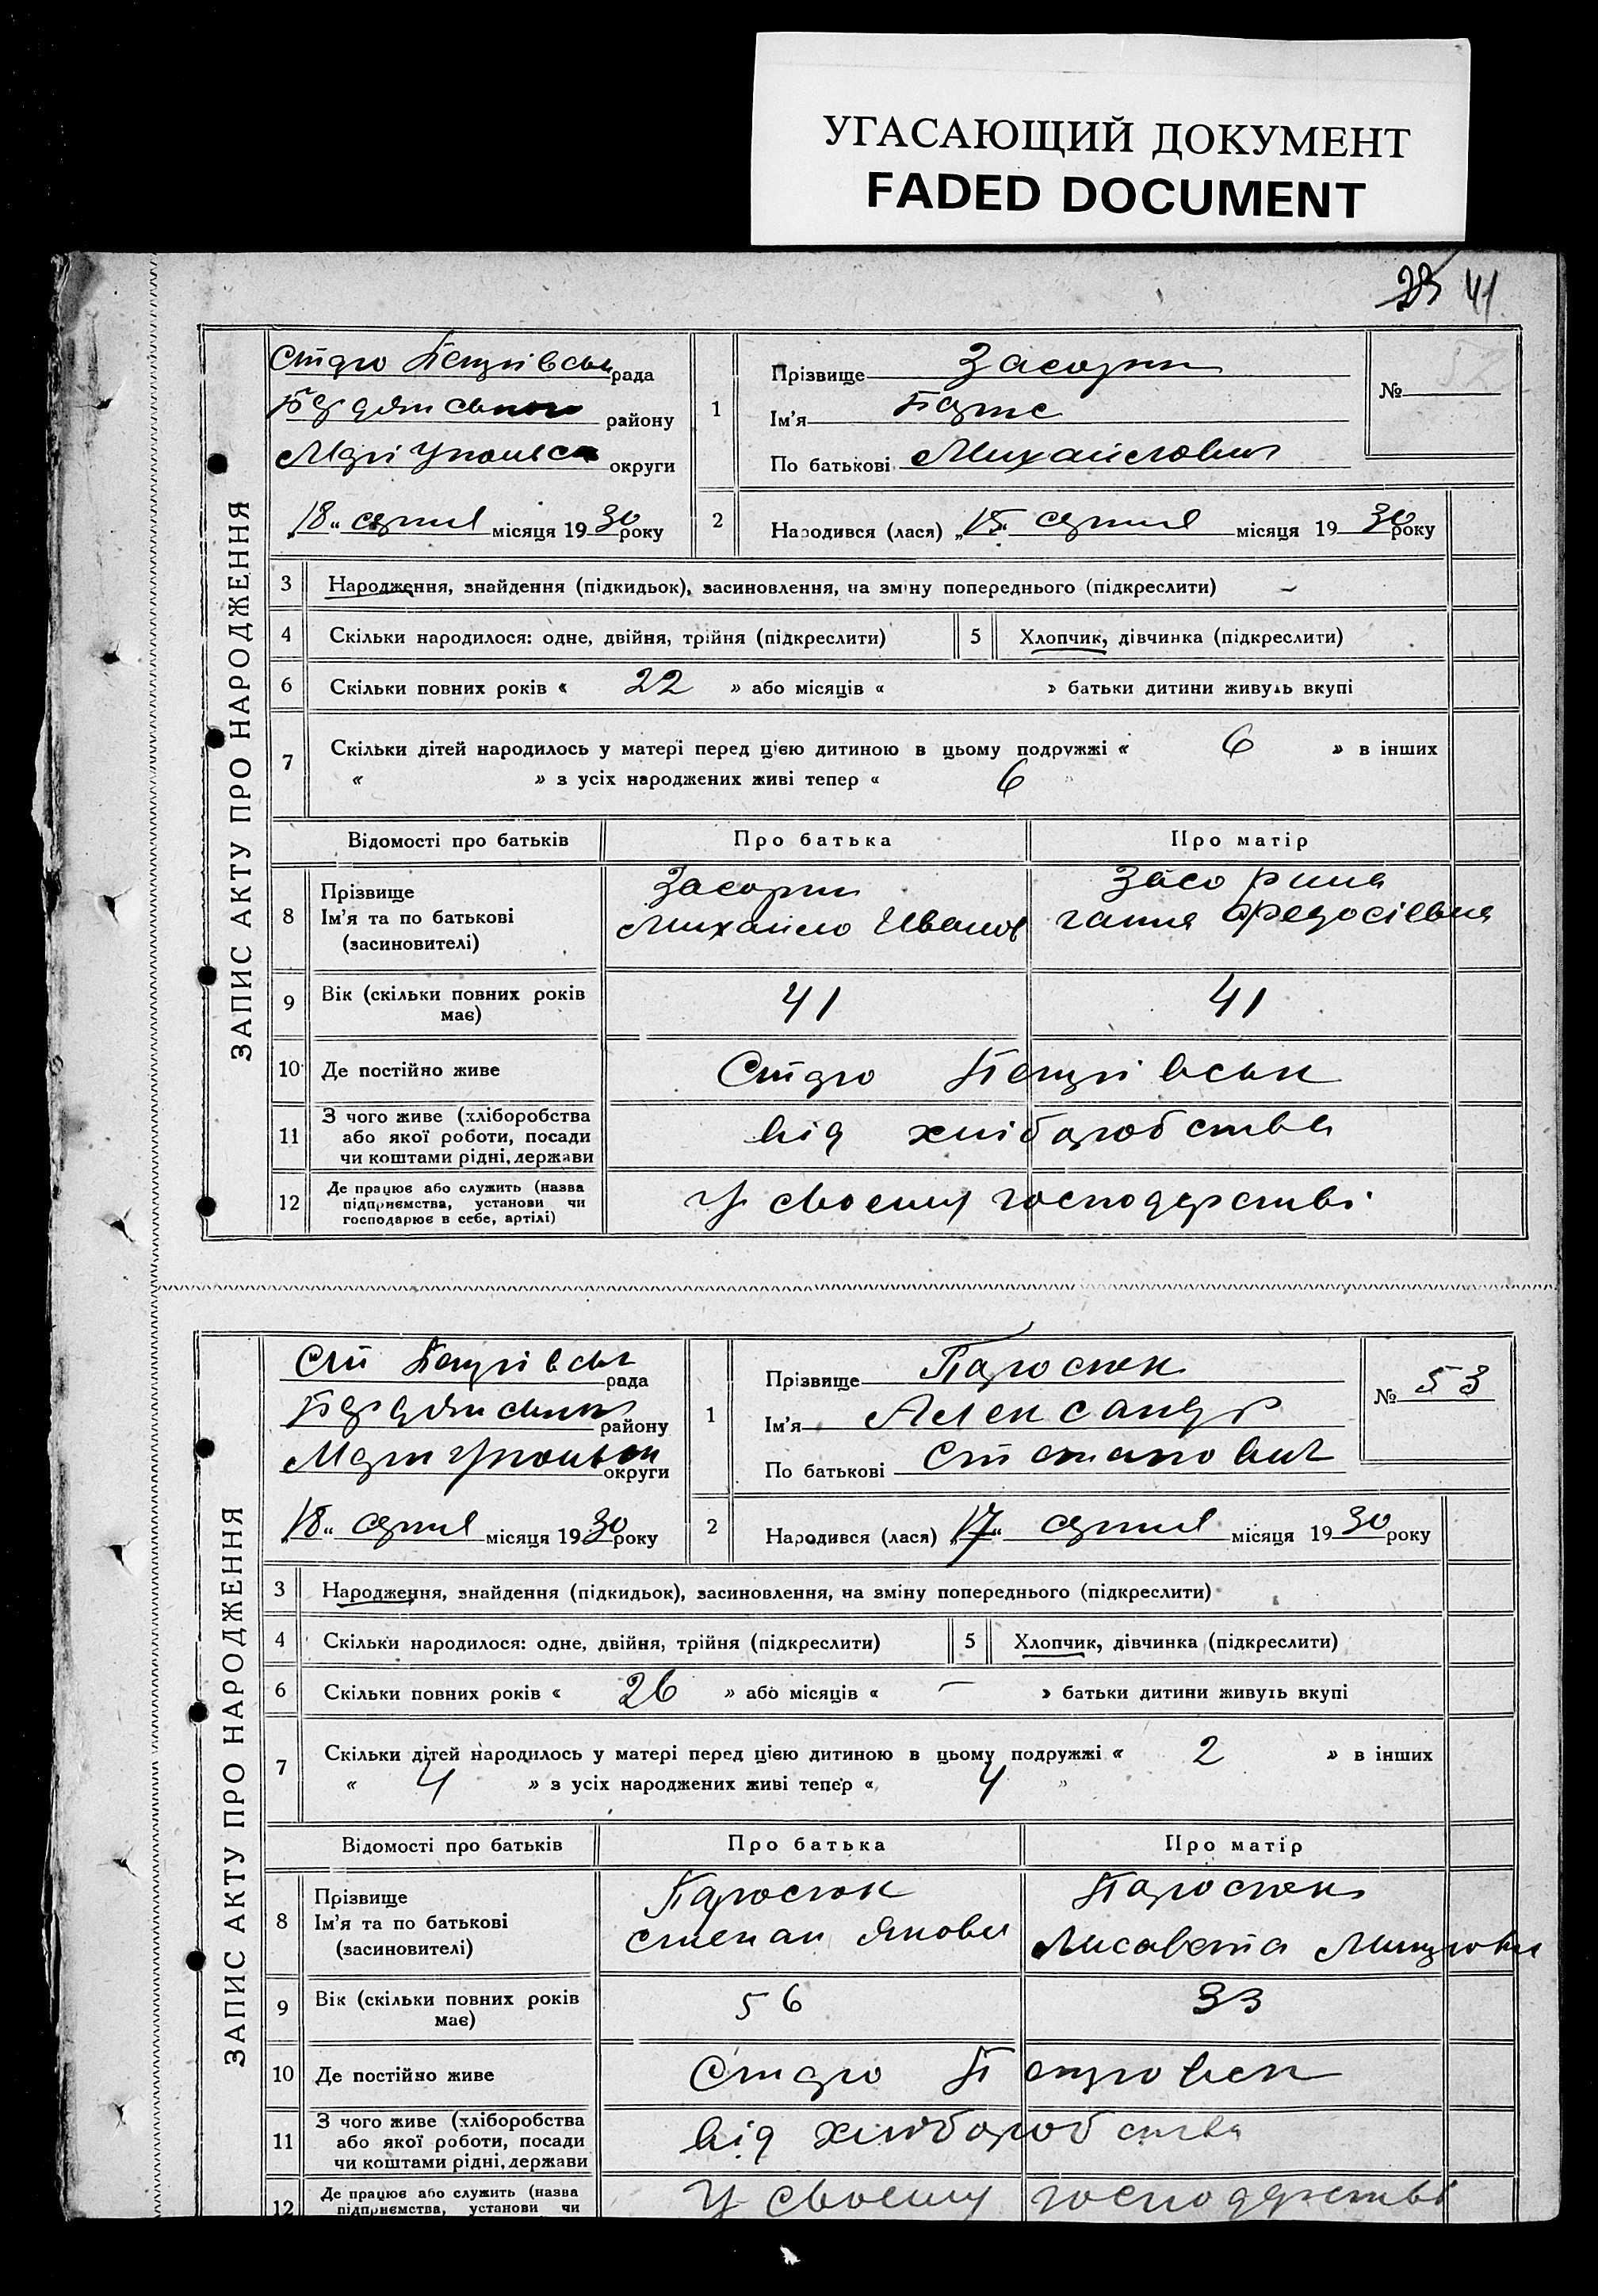 УГАСАЮЩИЙ ДОКУМЕНТ
FADED DOCUMENT
41
ЗАПИС АКТУ ПРО НАРОДЖЕННЯ
рада
району
округи
„18“ серпня місяця 1930 року
1
Прізвище Засорин
Ім'я
По батькові Михайлович
№ 52
2
Народився (лася) „15“ серпня місяця 1930 року
3 Народження, знайдення (підкидьок), засиновлення, на зміну попереднього (підкреслити)
4 Скільки народилося: одне, двійня, трійня (підкреслити)
5 Хлопчик, дівчинка (підкреслити)
6 Скільки повних років « 22 » або місяців « » батьки дитини живуть вкупі
7 Скільки дітей народилось у матері перед цією дитиною в цьому подружжі « 6 » в інших
« » з усіх народжених живі тепер « 6 »
Відомості про батьків Про батька Про матір
8 Прізвище
Ім'я та по батькові
(засиновителі)
Засорин
Михайло Иванов
Засорина
Ганна Федосіевна
9 Вік (скільки повних років має) 41 41
10 Де постійно живе Старо Петрівськ
11 З чого живе (хліборобства
або якої роботи, посади
чи коштами рідні, держави
від хліборобства
12 Де працює або служить (назва
підприємства, установи чи
господарює в себе, артілі)
У своему господарстві
ЗАПИС АКТУ ПРО НАРОДЖЕННЯ
рада
району
округи
„18“ серпня місяця 1930 року
1
Прізвище
Ім'я Александр
По батькові
№ 53
2
Народився (лася) „17“ серпня місяця 1930 року
3 Народження, знайдення (підкидьок), засиновлення, на зміну попереднього (підкреслити)
4 Скільки народилося: одне, двійня, трійня (підкреслити)
5 Хлопчик, дівчинка (підкреслити)
6 Скільки повних років « 26 » або місяців « – » батьки дитини живуть вкупі
7 Скільки дітей народилось у матері перед цією дитиною в цьому подружжі « 2 » в інших
« 4 » з усіх народжених живі тепер « 4 »
Відомості про батьків Про батька Про матір
8 Прізвище
Ім'я та по батькові
(засиновителі)
Степан
Лисавета
9 Вік (скільки повних років має) 56 33
10 Де постійно живе Старо Петровск
11 З чого живе (хліборобства
або якої роботи, посади
чи коштами рідні, держави
від хліборобства
12 Де працює або служить (назва
підприємства, установи чи
У своему господарстві